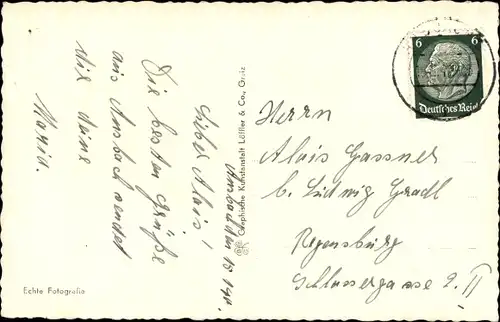 Ansbach den
Lieber Alois!
Die besten Grüße
aus Ansbach sendet
Dir deine
Maria.
Graphische Kunstanstalt Löffler & Co., Greiz
Echte Fotografie
6 6
Deutsches Reich
Herrn
Alois Gassner
b. Ludwig Gradl
Regensburg
Schlossergasse 2. II